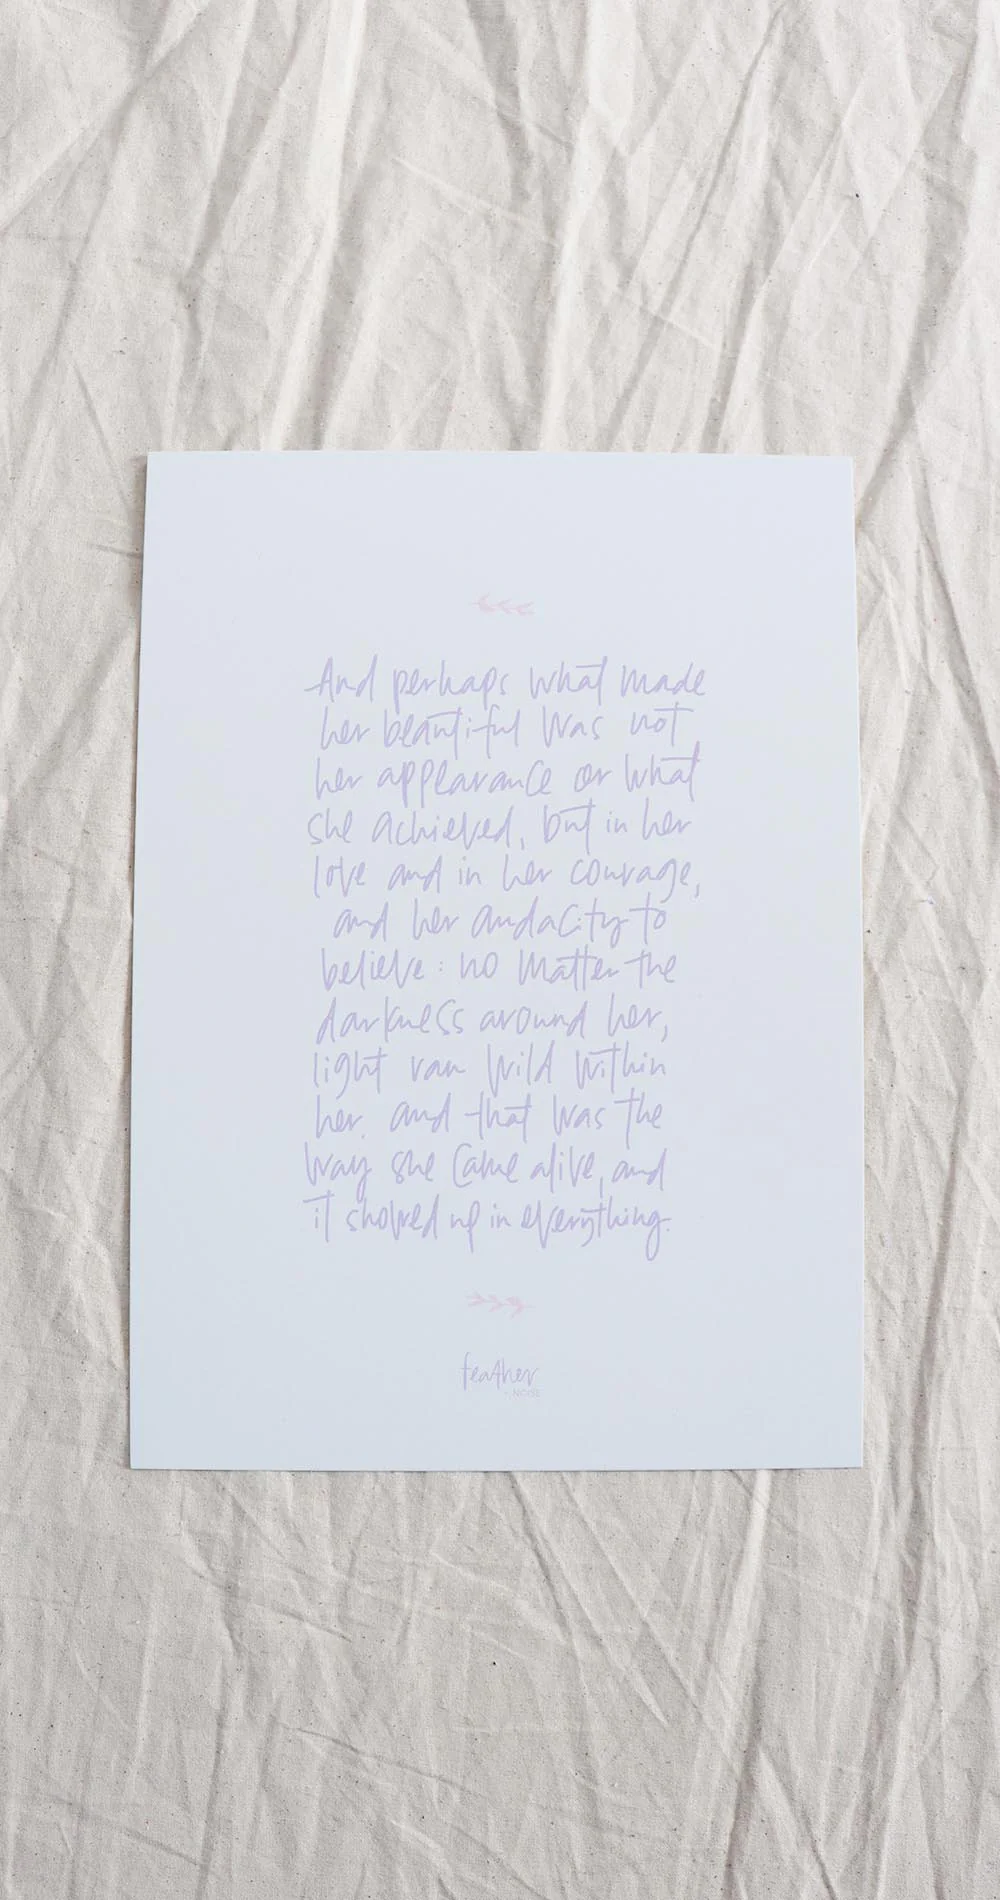 And perhaps what made
her beautiful was not
her appearance or what
she achieved, but in her
love and in her courage,
and her audacity to
believe: no matter the
darkness around her,
light ran wild within
her. and that was the
way she came alive, and
it showed up in everything.
feather
+ NOISE